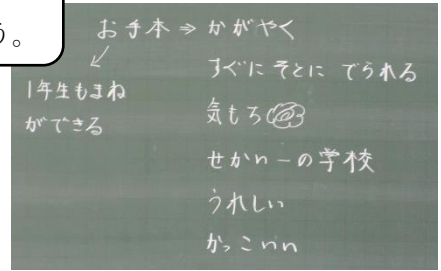 う。
お手本⇒かがやく
1年生もまね
ができる
すぐにそとにでられる
気もち
せかい一の学校
うれしい
かっこいい